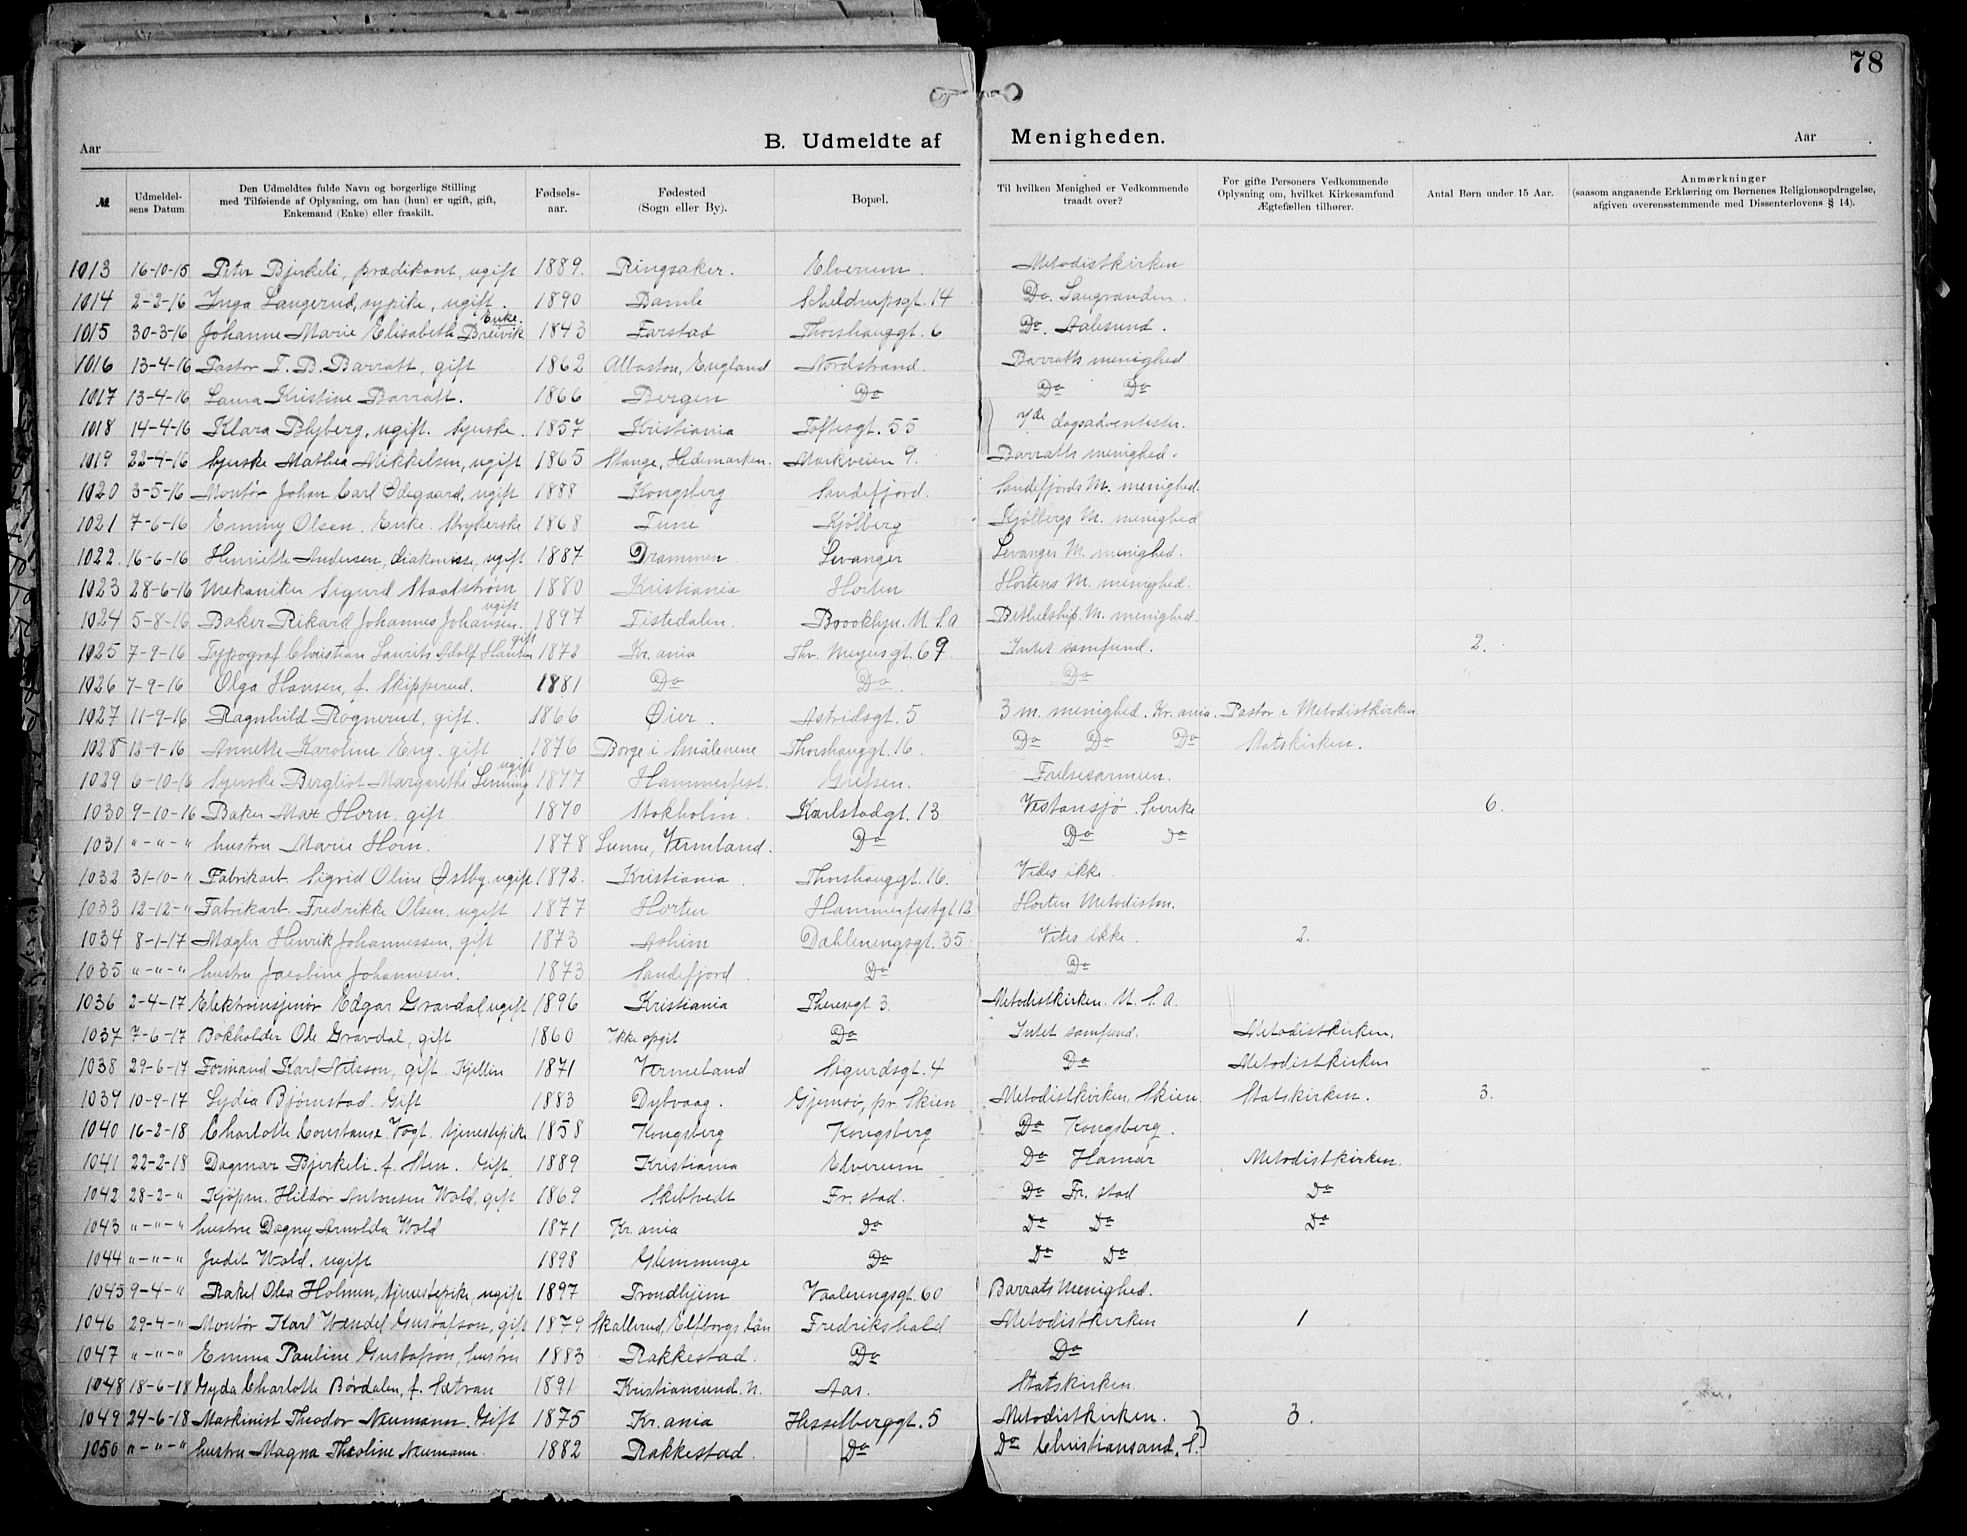 78
Aar B. Udmeldte af Menigheden. Aar
№ | Udmeldelsens Datum. | Den Udmeldtes fulde Navn og borgerlige Stilling med Tilføiende af Oplysning, om han (hun) er ugift, gift, Enkemand (Enke) eller fraskilt. | Fødselsaar. | Fødested (Sogn eller By). | Bopæl. | Til hvilken Menighed er Vedkommende traadt over? | For gifte Personers Vedkommende Oplysning om, hvilket Kirkesamfund Ægtefællen tilhører. | Antal Børn under 15 Aar. | Anmærkninger (saasom angaaende Erklæring om Børnenes Religionsopdragelse, afgiven overensstemmende med Dissenterlovens § 14).
1013 16-10-15 Peter Bjerkeli, prædikant, ugift 1889. Ringsaker. Elverum. Metodistkirken
1014 2-2-16 Inga Langerud, sypike, ugift. 1890 Bamle Schildrupsgt. 14 Do. Langranden.
1015 30-3-16 Johanne Marie Elisabeth Breivik Enke. 1843 Farstad Thorshauggt. 6 Do. Aalesund.
1016 13-4-16 Pastor T. B. Barratt, gift 1862 Albaston, England Nordstrand. Barratts menighed
1017 13-4-16 Laura Kristine Barratt. 1866 Bergen Do Do Do
1018 14-4-16 Klara Blyberg, ugift. Syerske. 1857 Kristiania Toftesgt. 55 7de dagsadventister.
1019 22-4-16 Syerske Mathea Mikkelsen, ugift 1865 Stange, Hedemarken. Markveien 9. Barratts menighed.
1020 3-5-16 Montør Johan Carl Ødegaard, ugift 1888 Kongsberg Sandefjord. Sandefjords M. menighed.
1021 7-6-16 Emmy Olsen. Enke. Strykerske 1868 Tune Kjølberg Kjølbergs M. menighed
1022. 16-6-16 Henriette Andersen, diakonisse, ugift 1887 Drammen Levanger Levanger M. menighed.
1023 28-6-16 Mekaniker Sigurd Staalstrøm 1880 Kristiania Horten Hortens M. menighed.
1024 5-8-16 Baker Rikard Johannes Johansen. ugift 1897 Tistedalen. Brooklyn. U.S.A Bethelship. M. menighed.
1025 7-9-16 Typograf Christian Laurits Adolf Hansen gift 1872 Kr.ania Thv. Meyersgt. 69 Intet samfund. 2.
1026 7-9-16 Olga Hansen, f. Skipperud. 1881 Do Do. Do
1027 11-9-16 Ragnhild Røgnerud, gift. 1866 Øier. Astridsgt. 5 3 m. menighed. Kr.ania. Pastor i Metodistkirken
1028 12-9-16 Annette Karoline Eng. gift 1876 Borge i Smålenene Thorshauggt. 16. Do Do Do Statskirken.
1029 6-10-16 Syerske Bergliot Margarethe Lenning ugift 1877 Hammerfest. Grefsen. Frelsesarmeen.
1030 9-10-16 Baker Max Horn. gift. 1870 Stokholm. Karlstadgt. 13 Vestansjø. Sverike 6.
1031 "-"-" hustru Marie Horn. 1878 Sunne, Vermland. Do Do do
1032 31-10-" Fabrikarb. Sigrid Oline Østby. ugift 1892. Kristiania. Thorshauggt. 16. Vides ikke.
1033 12-12-" Fabrikarb. Fredrikke Olsen, ugift 1877 Horten Hammerfestgt 12 Horten Metodistm.
1034 8-1-17 Mægler Henrik Johannessen, gift 1873 Askim Dæhlenengsgt. 35 Vites ikke. 2.
1035 "-"-" hustru Jacobine Johannesen. 1873 Sandefjord. Do Do
1036 2-4-17 Elektroinsjenør Edgar Gravdal, ugift 1896 Kristiania Theresgt 3. Metodistkirken. U.S.A.
1037 7-6-17 Bokholder Ole Gravdal, gift 1860 Ikke opgit Do Intet samfund. Metodistkirken.
1038 29-6-17 Formand Karl Nilsson, gift. Kjellin 1871 Vermeland Sigurdsgt. 4 Do Metodistkirken
1039 10-9-17 Lydia Bjørnstad. Gift 1883 Dybvaag. Gjemsø, pr. Skien Metodistkirken, Skien. Statskirken. 3.
1040 16-2-18 Charlotte Constanse Vogt. tjenestepike 1858 Kongsberg Kongsberg Do Kongsberg.
1041 22-2-18 Dagmar Bjerkeli. f. Sten. Gift 1889 Kristiania Elverum Do Hamar Metodistkirken.
1042 28-2-" Kjøpm. Hildor Antonsen Wold, gift 1869 Skibtvedt Fr.stad. Do Fr.stad Do
1043 "-"-" hustru Dagny Arnolda Wold 1871 Kr.ania do Do Do Do
1044 "-"-" Judit Wold. ugift 1898 Glemminge Do Do Do
1045 9-4-" Rakel Olea Holmen, tjenestepike, ugift 1897 Trondhjem Vaalerengsgt. 60 Barrats Menighed.
1046 29-4-" Montør Karl Wendel Gustafson, gift 1879 Skallerud, Elfborgs län Fredrikshald Metodistkirken 1
1047 "-"-" Emma Pauline Gustafson, hustru 1883 Rakkestad. Do Do
1048 18-6-18 Gyda Charlotte Børdalen, f. Sætran 1891 Kristiansund. N. Aas. Statskirken.
1049 24-6-18 Maskinist Theodor Neumann. Gift 1875 Kr.ania Hesselberggt. 5 Metodistkirken. 3.
1050 "-"-" hustru Magna Theoline Neumann. 1882 Rakkestad. Do Do Christiansand. S.